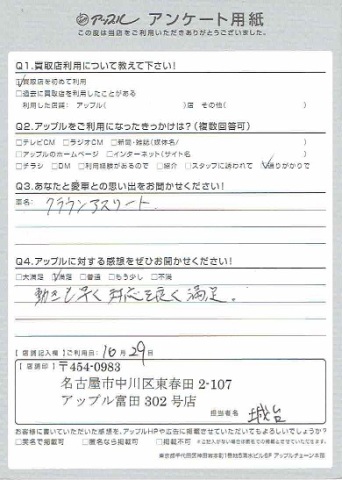 アップル アンケート用紙
この度は当店をご利用いただきありがとうございました。
Q1.買取店利用について教えて下さい!
☑買取店を初めて利用
□過去に買取店を利用したことがある
利用した店舗: アップル( )店 その他( )
Q2.アップルをご利用になったきっかけは?(複数回答可)
□テレビCM □ラジオCM □新聞・雑誌(媒体名 )
□アップルのホームページ □インターネット(サイト名 )
□チラシ □DM □利用経験があるので □紹介 □スタッフに誘われて ☑通りがかりで
Q3.あなたと愛車との思い出をお聞かせください!
車名: クラウンアスリート
Q4.アップルに対する感想をぜひお聞かせください!
□大満足 ☑満足 □普通 □もう少し □不満
動きも早く 対応も良く 満足。
【店舗記入欄】ご利用日: 10月29日
【店舗印】〒454-0983
名古屋市中川区東春田2-107
アップル富田302号店
担当者名
お客様に書いていただいた感想を、アップルHPや広告に掲載させていただいてもよろしいでしょうか?
□実名で掲載可 □匿名なら掲載可 □掲載不可